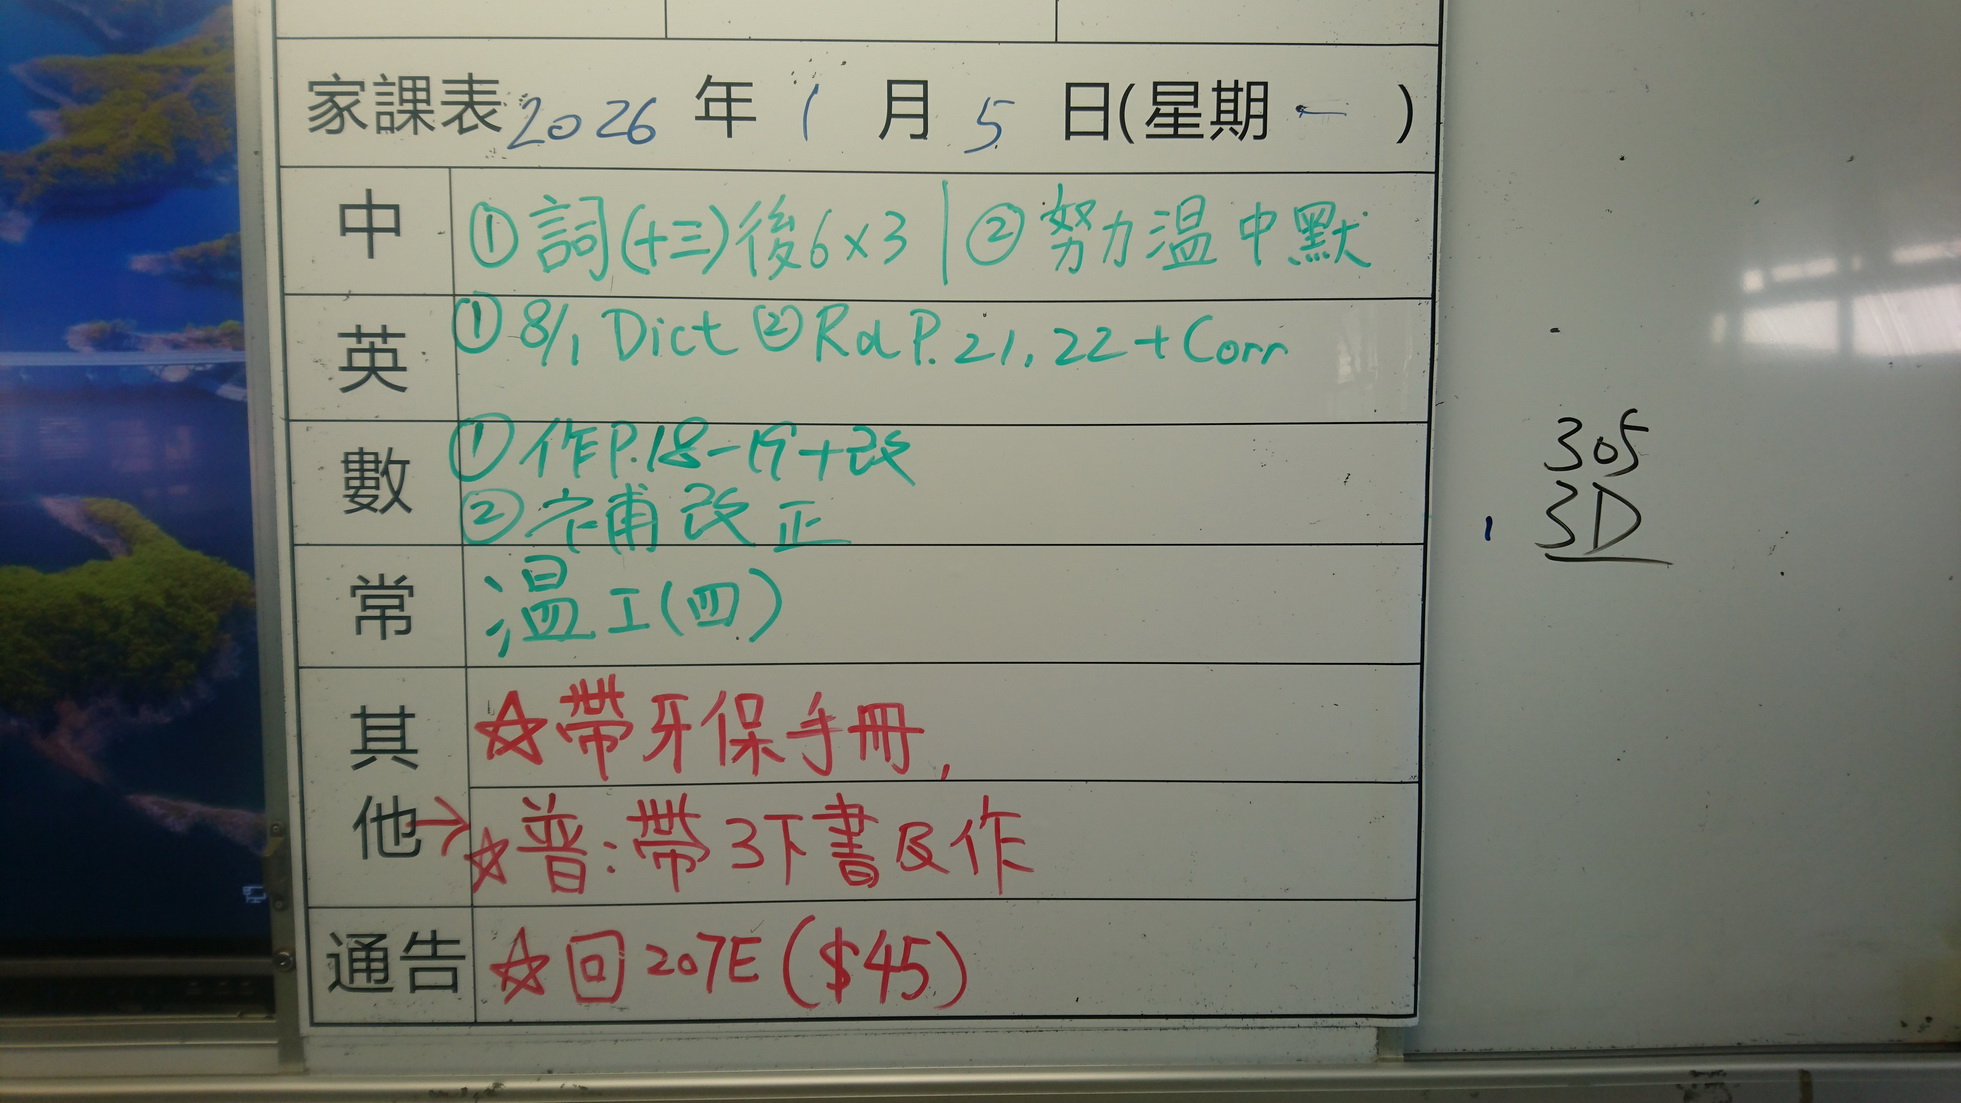 家課表 2026 年 1 月 5 日(星期 一 )
中 ①詞(十三)後6×3 | ②努力温中默
英 ①8/1 Dict ②Rd P. 21, 22 + Corr
數 ①作P.18-19+改
②補改正
常 温工(四)
其他 ☆帶牙保手冊,
→ ☆普:帶3下書及作
通告 ☆回207E($45)
305
3D